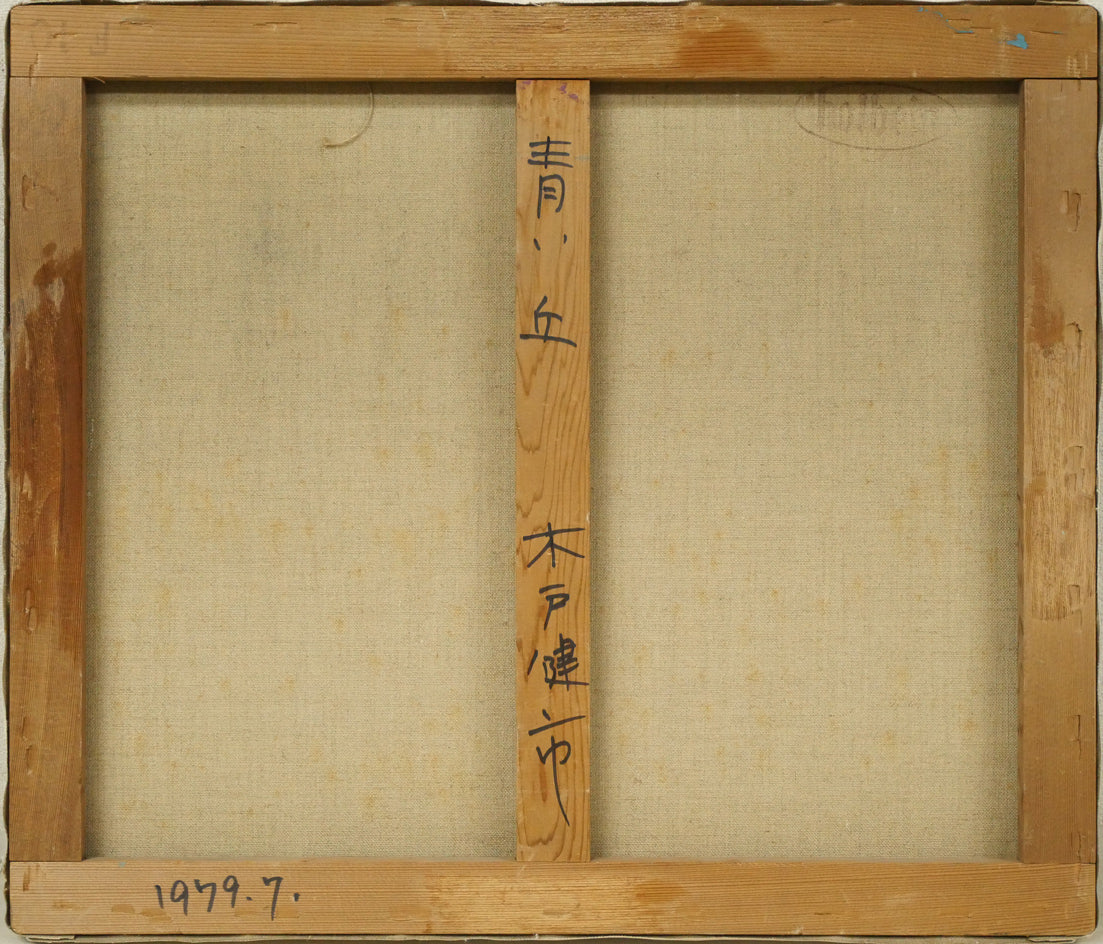 青い丘 木戸健市
1979.7.